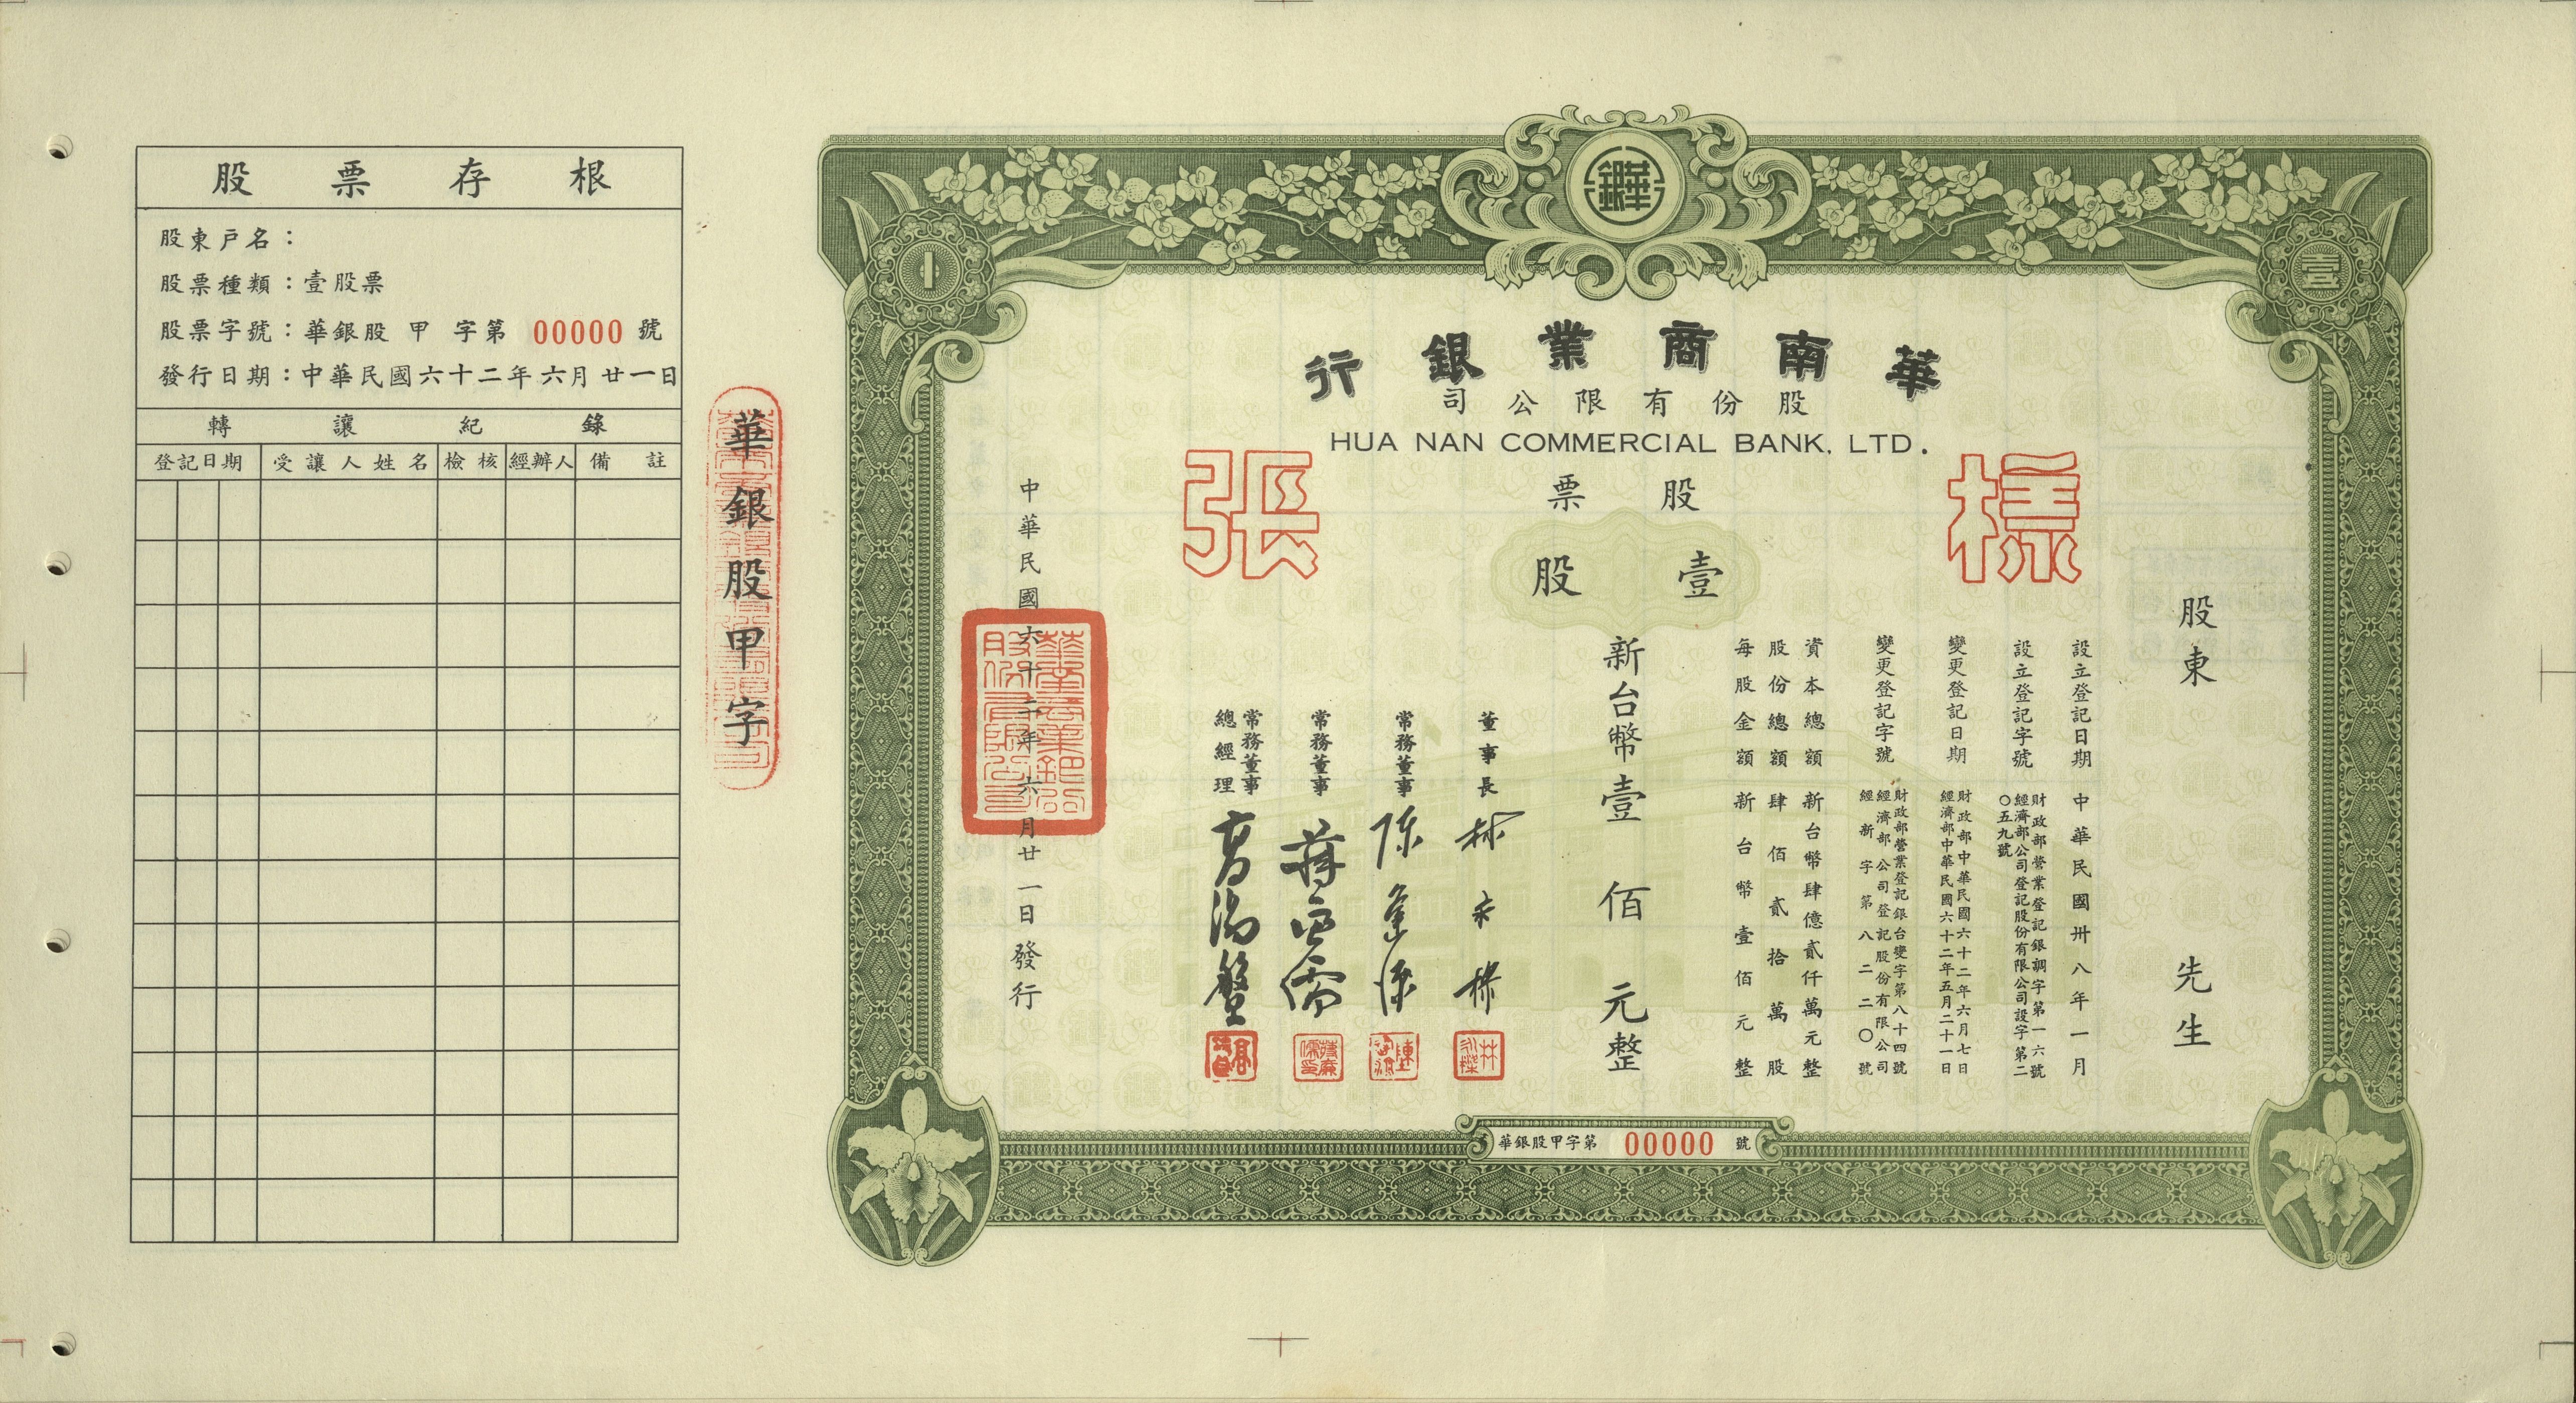 股票存根
股東戶名：
股票種類：壹股票
股票字號：華銀股 甲 字第 00000 號
發行日期：中華民國六十二年六月廿一日
轉讓紀錄
登記日期 受讓人姓名 檢核 經辦人 備註
華銀股甲字
華銀
壹
華南商業銀行
股份有限公司
HUA NAN COMMERCIAL BANK, LTD.
樣張
股票
壹股
股東 先生
設立登記日期 中華民國卅八年一月
設立登記字號 財政部營業登記銀調字第一六號
經濟部公司登記股份有限公司設字第二〇五九號
變更登記日期 財政部中華民國六十二年六月七日
經濟部中華民國六十二年五月二十一日
變更登記字號 財政部營業登記銀台變字第八十四號
經濟部公司登記股份有限公司
經新字第八二二〇號
資本總額 新台幣肆億貳仟萬元整
股份總額 肆佰貳拾萬股
每股金額 新台幣壹佰元整
新台幣壹佰元整
董事長 林永樑
常務董事 陳
常務董事 蔣
常務董事
總經理 高湯盤
中華民國六十二年六月廿一日發行
華銀股甲字第 00000 號